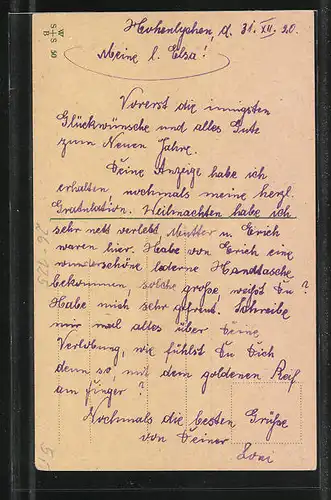 W
S+S 50
B
Hohenlychen, d. 31. XII. 20.
Meine l. Elsa!
Vorerst die innigsten
Glückwünsche und alles Gute
zum Neuen Jahre.
Deine Anzeige habe ich
erhalten, nochmals meine herzl.
Gratulation. Weihnachten habe ich
sehr nett verlebt Mutter u. Erich
waren hier. Habe von Erich eine
wunderschöne lederne Handtasche
bekommen, solche große, weißt Du?
Habe mich sehr gefreut. Schreibe
mir mal alles über Deine
Verlobung, wie fühlst Du Dich
denn so, mit dem goldenen Reif
am Finger?
Nochmals die besten Grüße
von Deiner
Loni
26-125